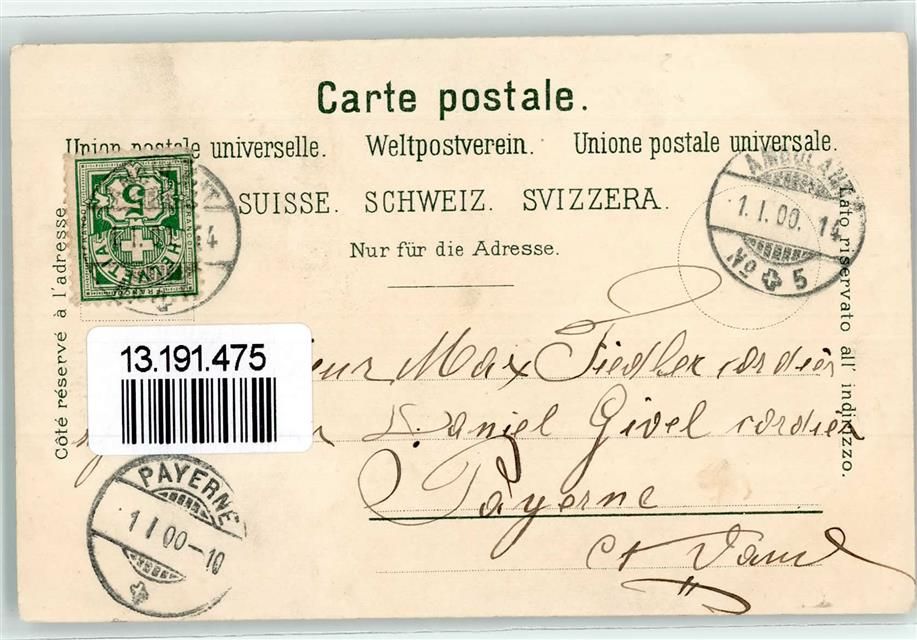 Carte postale.
Union postale universelle. Weltpostverein. Unione postale universale.
SUISSE. SCHWEIZ. SVIZZERA.
Nur für die Adresse.
Côté réservé à l'adresse.
Lato riservato all' indirizzo.
5
HELVETIA
FRANCO
14
AMBULANT
1.I.00. 14
No 5
13.191.475
Max Fiedler cordier
Daniel Givel cordier
Payerne
ct Vaud
PAYERNE
1 I 00-10